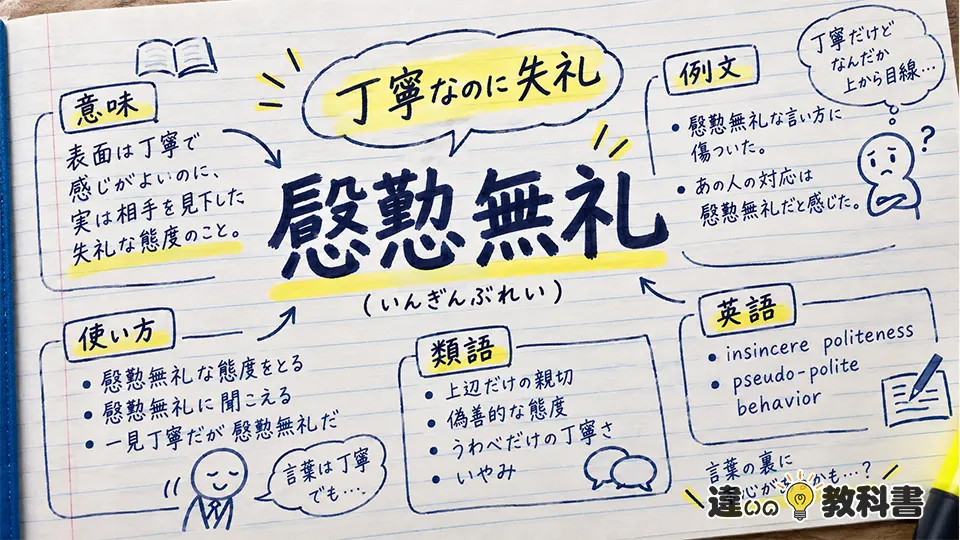 丁寧なのに失礼
慇懃無礼
(いんぎんぶれい)
意味
表面は丁寧で
感じがよいのに、
実は相手を見下した
失礼な態度のこと。
例文
• 慇懃無礼な言い方に
傷ついた。
• あの人の対応は
慇懃無礼だと感じた。
丁寧だけど
なんだか
上から目線…
?
使い方
• 慇懃無礼な態度をとる
• 慇懃無礼に聞こえる
• 一見丁寧だが慇懃無礼だ
言葉は丁寧
でも…
類語
• 上辺だけの親切
• 偽善的な態度
• うわべだけの丁寧さ
• いやみ
英語
• insincere politeness
• pseudo-polite
behavior
言葉の裏に
心が かも…?
違いの教科書